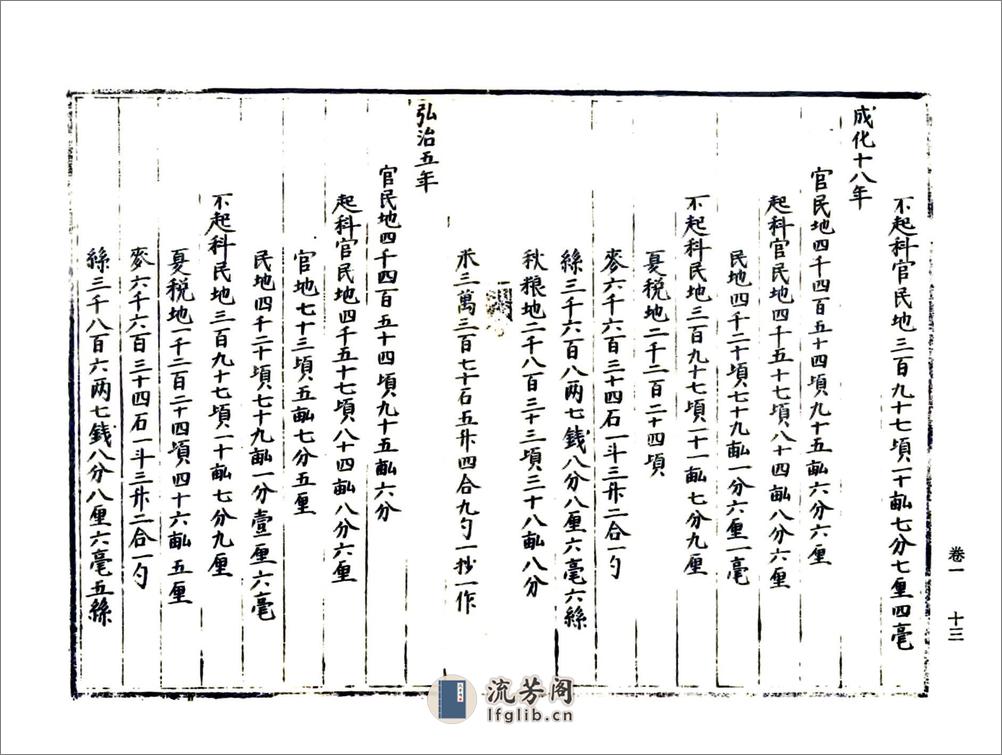 不起科官民地三百九十七頃一十畝七分七厘四毫
成化十八年
官民地四千四百五十四頃九十五畝六分六厘
起科官民地四千五十七頃八十四畝八分六厘
民地四千二十頃七十九畝一分六厘一毫
不起科民地三百九十七頃一十一畝七分九厘
夏稅地二千二百二十四頃
麥六千六百三十四石一斗三升二合一勺
絲三千六百八两七錢八分八厘六毫六絲
秋粮地二千八百三十三頃三十八畝八分
米三萬三百七十石五升四合九勺一抄一作
弘治五年
官民地四千四百五十四頃九十五畝六分
起科官民地四千五十七頃八十四畝八分六厘
官地七十三頃五畝七分五厘
民地四千二十頃七十九畝一分壹厘六毫
不起科民地三百九十七頃一十畝七分九厘
夏稅地一千二百二十四頃四十六畝五厘
麥六千六百三十四石一斗三升二合一勺
絲三千八百六两七錢八分八厘六毫五絲
卷一 十三
流芳阁
lfglib.cn